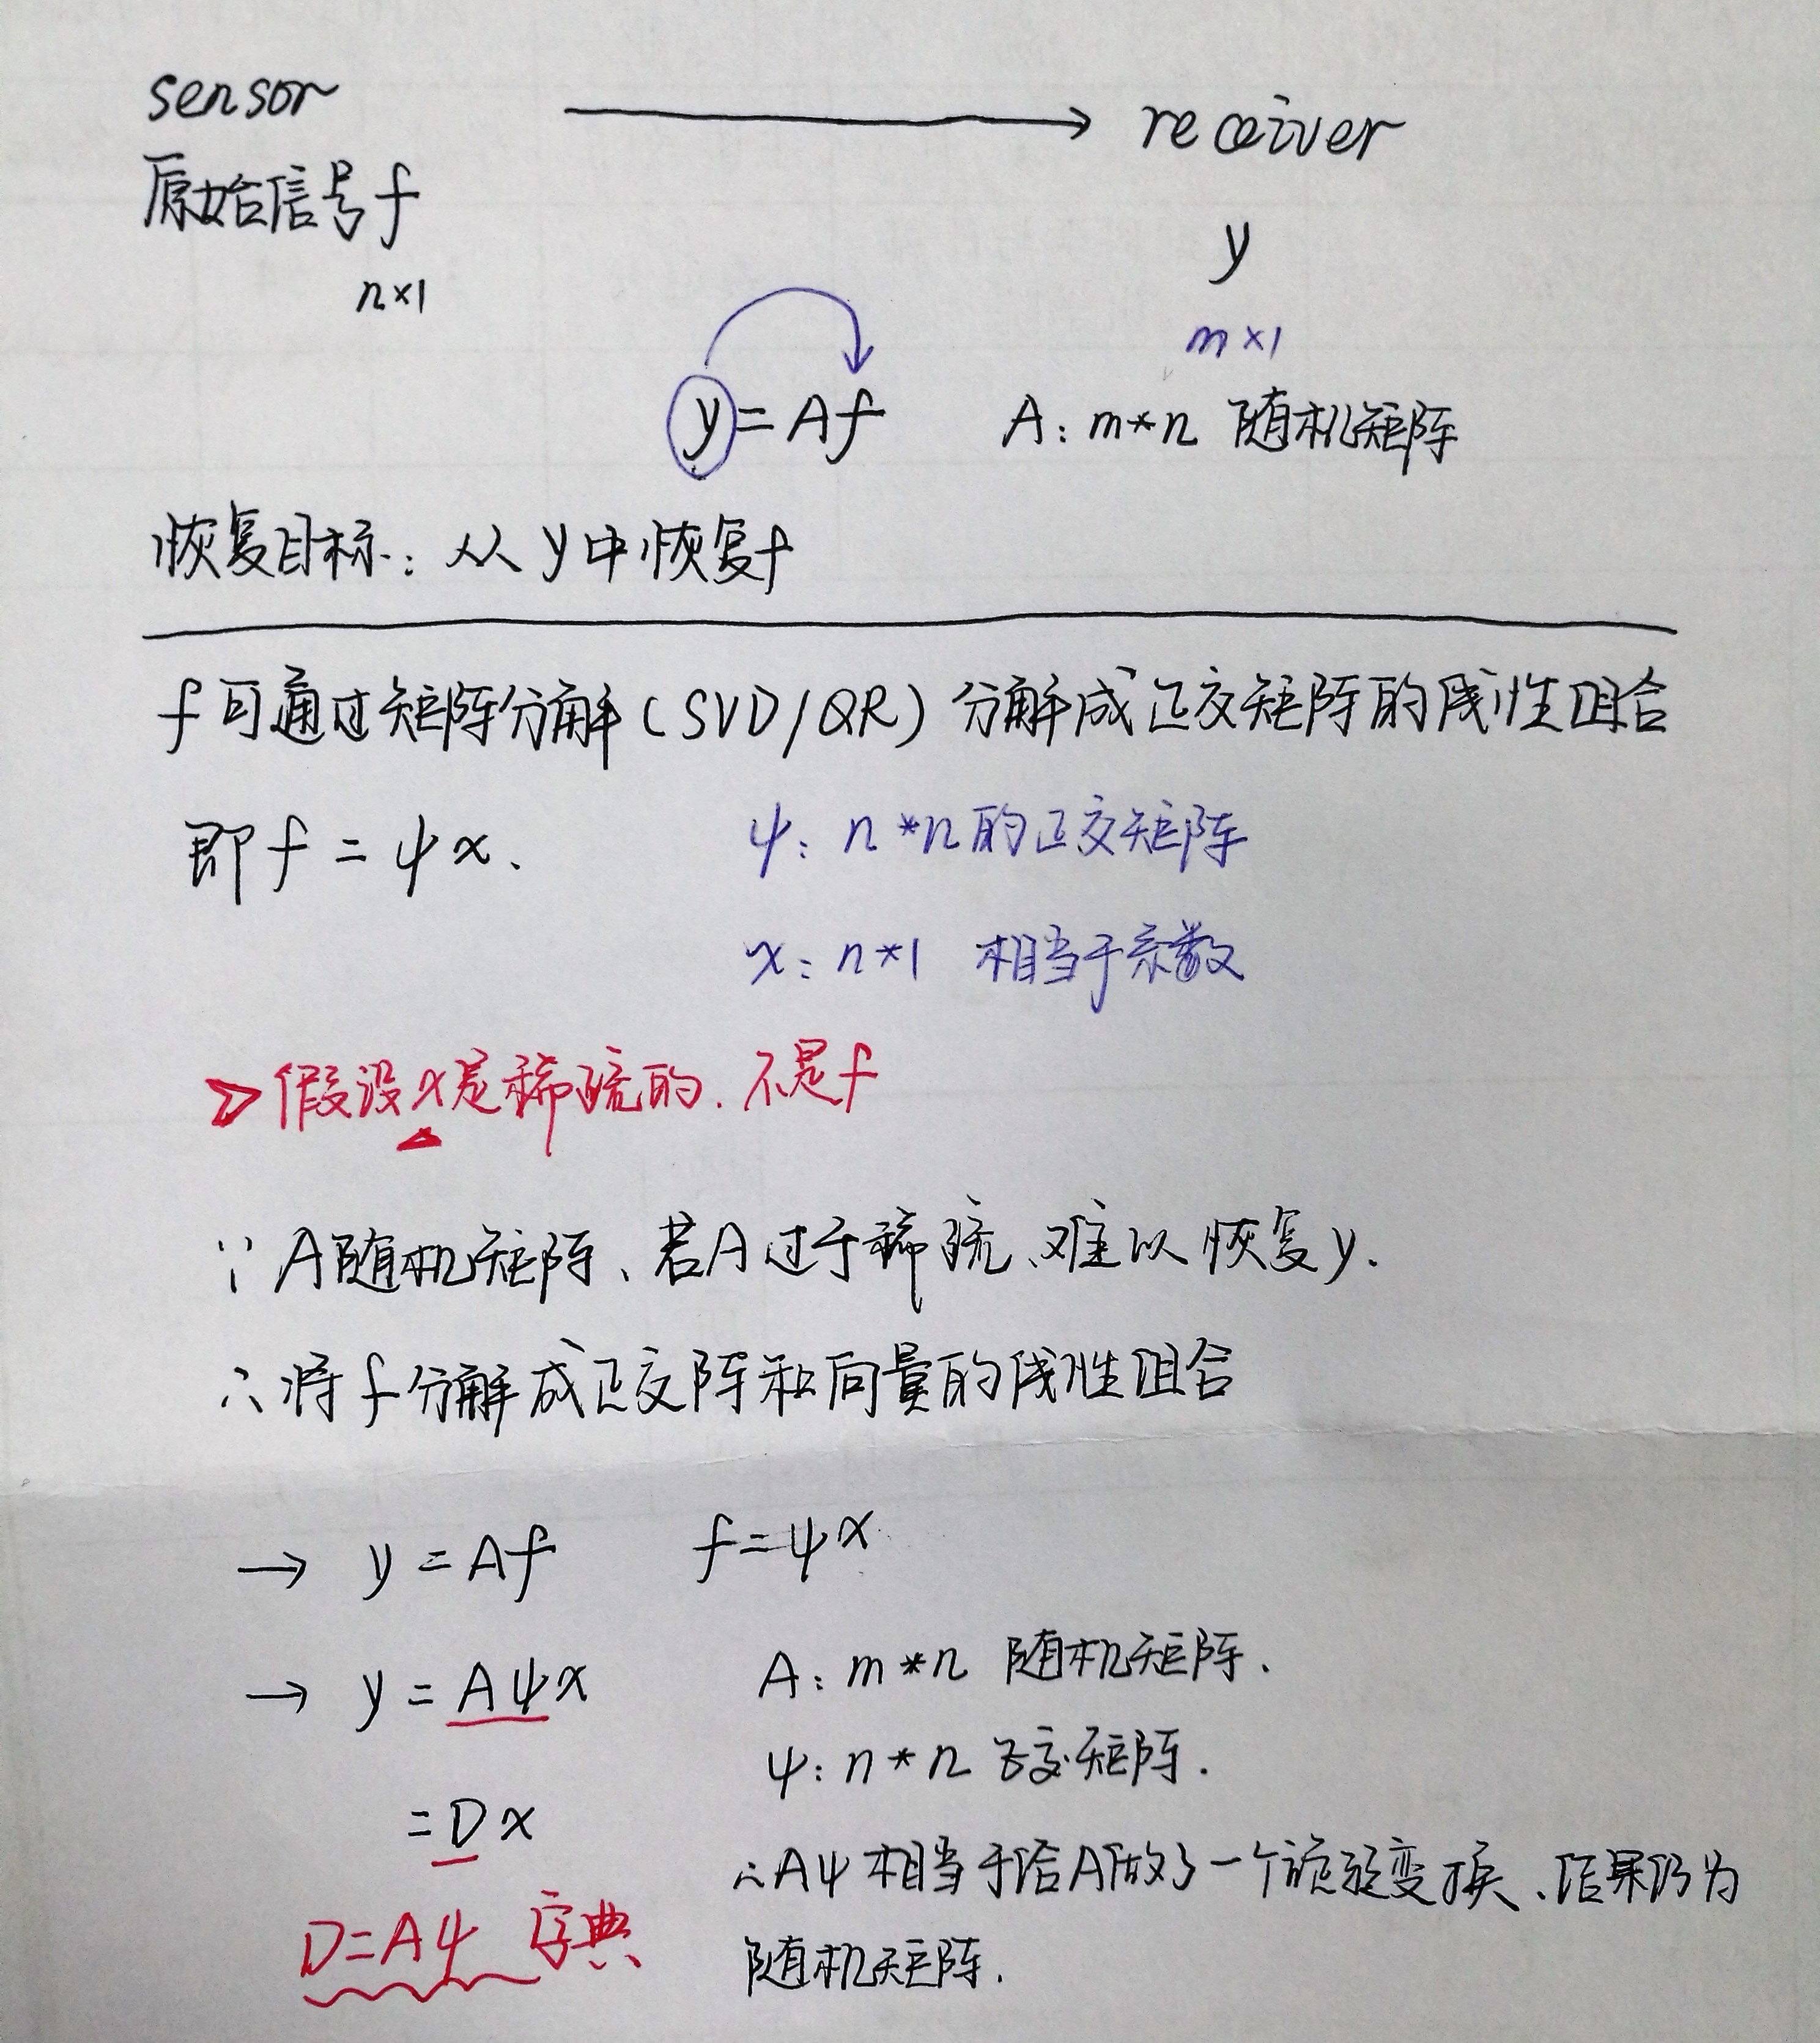 sensor → receiver
原始信号f
y
n×1
m×1
y=Af A: m*n 随机矩阵
恢复目标: 从y中恢复f
f可通过矩阵分解(SVD/QR)分解成正交矩阵的线性组合
即f=ψx. ψ: n*n的正交矩阵
x: n*1 相当于系数
假设x是稀疏的. 不是f
∵ A随机矩阵、若A过于稀疏、难以恢复y.
∴ 将f分解成正交阵和向量的线性组合
→ y=Af f=ψx
→ y=Aψx A: m*n 随机矩阵.
ψ: n*n 正交矩阵.
=Dx
∴Aψ相当于给A做了一个旋转变换、结果仍为
D=Aψ 字典
随机矩阵.